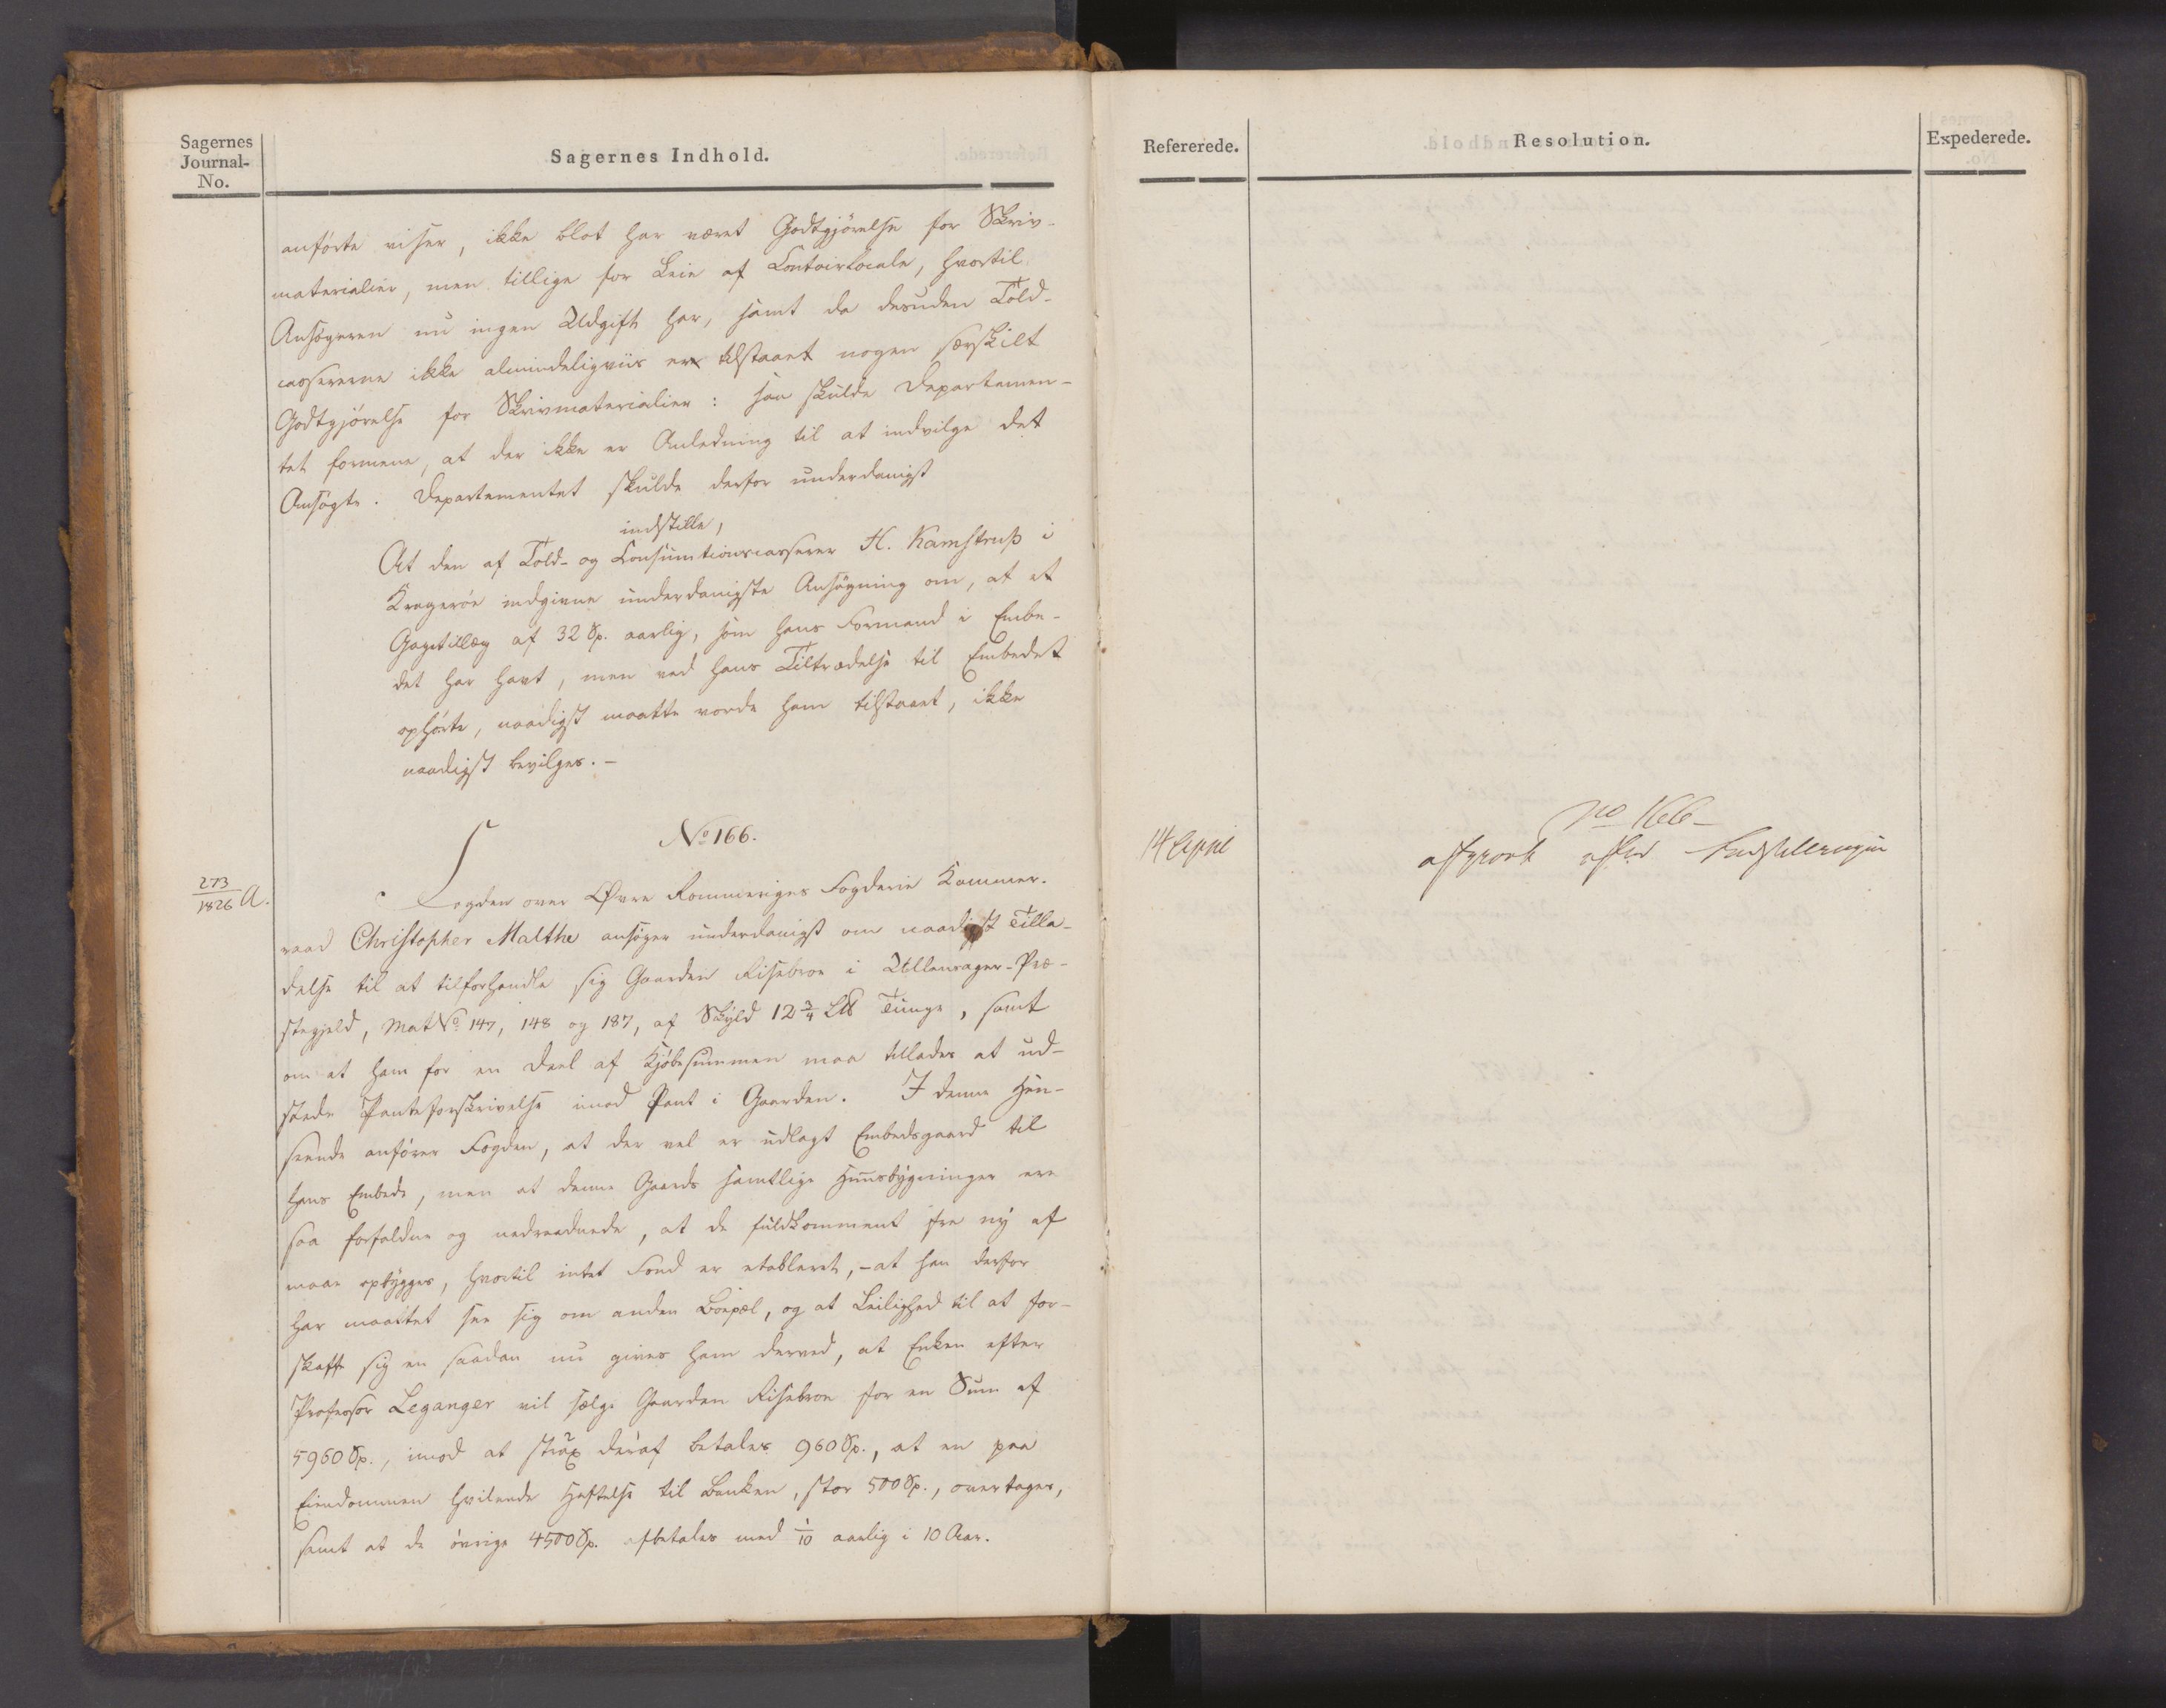 Sagernes
Journal-
No.
Sagernes Indhold.
anførte viser, ikke blot har været Godtgjörelse for Skriv-
materialier, men tillige for Leie af Contoirlocale, hvortil
Ansögeren nu ingen Udgift har, samt da desuden Told-
casererne ikke almindeligviis er tilstaaet nogen særskilt
Godtgjörelse for Skrivmaterialier: saa skulde Departemen-
tet formene, at der ikke er Anledning til at indvilge det
Ansögte. Departementet skulde derfor underdanigst
indstille,
At den af Told- og Consumtionscasserer H. Kamstrup i
Krageröe indgivne underdanigste Ansögning om, at et
Gagetillæg af 32 Sp. aarlig, som hans Formand i Embe-
det har havt, men ved hans Tiltrædelse til Embedet
ophörte, naadigst maatte vorde ham tilstaaet, ikke
naadigst bevilges. –
No 166.
273
1826 A.
Fogden over Øvre Rommeriges Fogderie Kammer-
raad Christopher Malthe ansöger underdanigst om naadigst Tilla-
delse til at tilforhandle sig Gaarden Risebroe i Ullensager-Præ-
stegjeld, Mat No 147, 148 og 187, af Skyld 12 3/4 L℔ Tunge, samt
om at ham for en Deel af Kjöbesummen maa tillades at ud-
stede Panteforskrivelse imod Pant i Gaarden. I denne Hen-
seende anförer Fogden, at der vel er udlagt Embedsgaard til
hans Embede, men at denne Gaards samtlige Huusbygninger ere
saa forfaldne og nedraadnede, at de fuldkomment fra ny af
maae opbygges, hvortil intet Fond er etableret, – at han derfor
har maattet see sig om anden Boepæl, og at Leilighed til at for-
skaffe sig en saadan nu gives ham derved, at Enken efter
Professor Leganger vil sælge Gaarden Risebroe for en Sum af
5960 Sp., imod at strax deraf betales 960 Sp., at en paa
Eiendommen hvilende Heftelse til Banken, stor 500 Sp., overtages,
samt at de övrige 4500 Sp. afbetales med 1/10 aarlig i 10 Aar.
Refererede.
Resolution.
Expederede.
14 April
No 166 –
afgjort efter Indstillingen